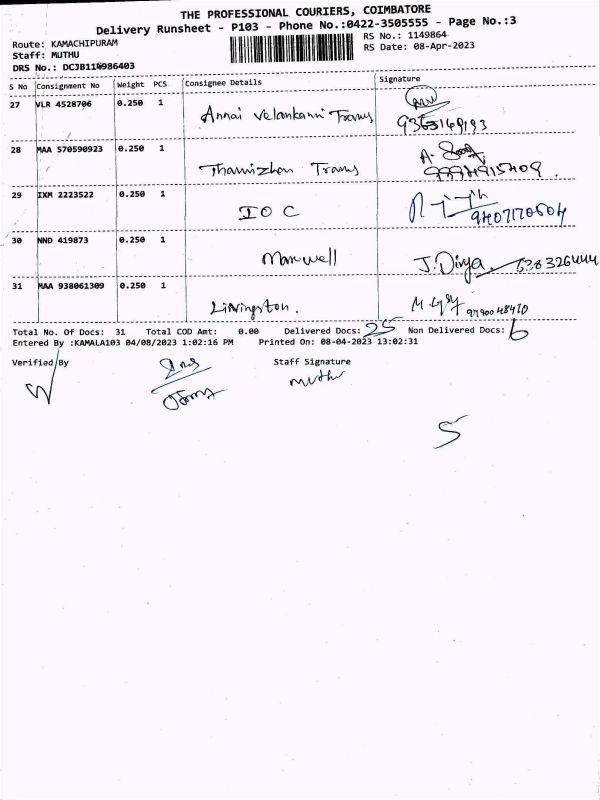 THE PROFESSIONAL COURIERS, COIMBATORE
Delivery Runsheet - P103 - Phone No.:0422-3505555 - Page No.:3
Route: KAMACHIPURAM
RS No.: 1149864
Staff: MUTHU
RS Date: 08-Apr-2023
DRS No.: DCJB114986403
S No Consignment No Weight PCS Consignee Details Signature
27 VLR 4528706 0.250 1 Annai Velankanni Trans
28 MAA 570590923 0.250 1 Thamizhan Trans
29 IXM 2223522 0.250 1 IOC
30 NND 419873 0.250 1 Maxwell J. Divya
31 MAA 938061309 0.250 1 Livingston.
Total No. Of Docs: 31 Total COD Amt: 0.00 Delivered Docs: 25 Non Delivered Docs: 6
Entered By :KAMALA103 04/08/2023 1:02:16 PM Printed On: 08-04-2023 13:02:31
Verified By Staff Signature
Muthu
5